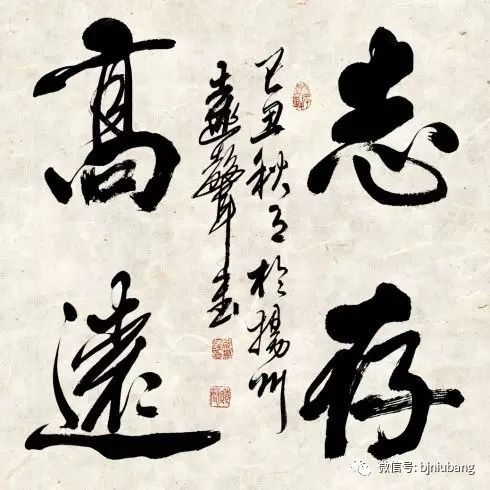 志存
高遠
己丑秋月於揚州
聲書
微信号: bjniubang